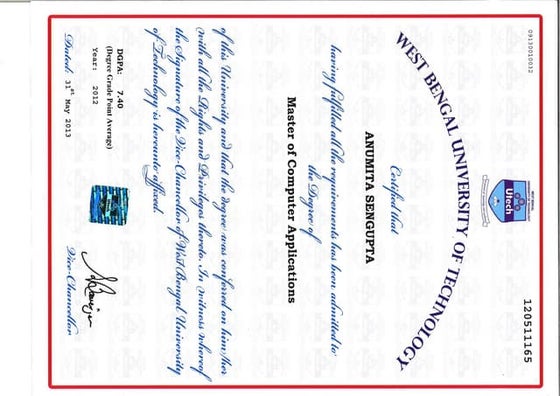 09113010012
120511165
Utech
WEST BENGAL UNIVERSITY OF TECHNOLOGY
Certified that
ANUMITA SENGUPTA
having fulfilled all the requirements has been admitted to
the Degree of
Master of Computer Applications
of this University and that the degree was conferred on him/her
with all the Rights and Privileges thereto. In witness whereof
the Signature of the Vice-Chancellor of West Bengal University
of Technology is hereunto affixed.
DGPA: 7.40
(Degree Grade Point Average)
Year: 2012
Dated: 31st May 2013
Vice-Chancellor